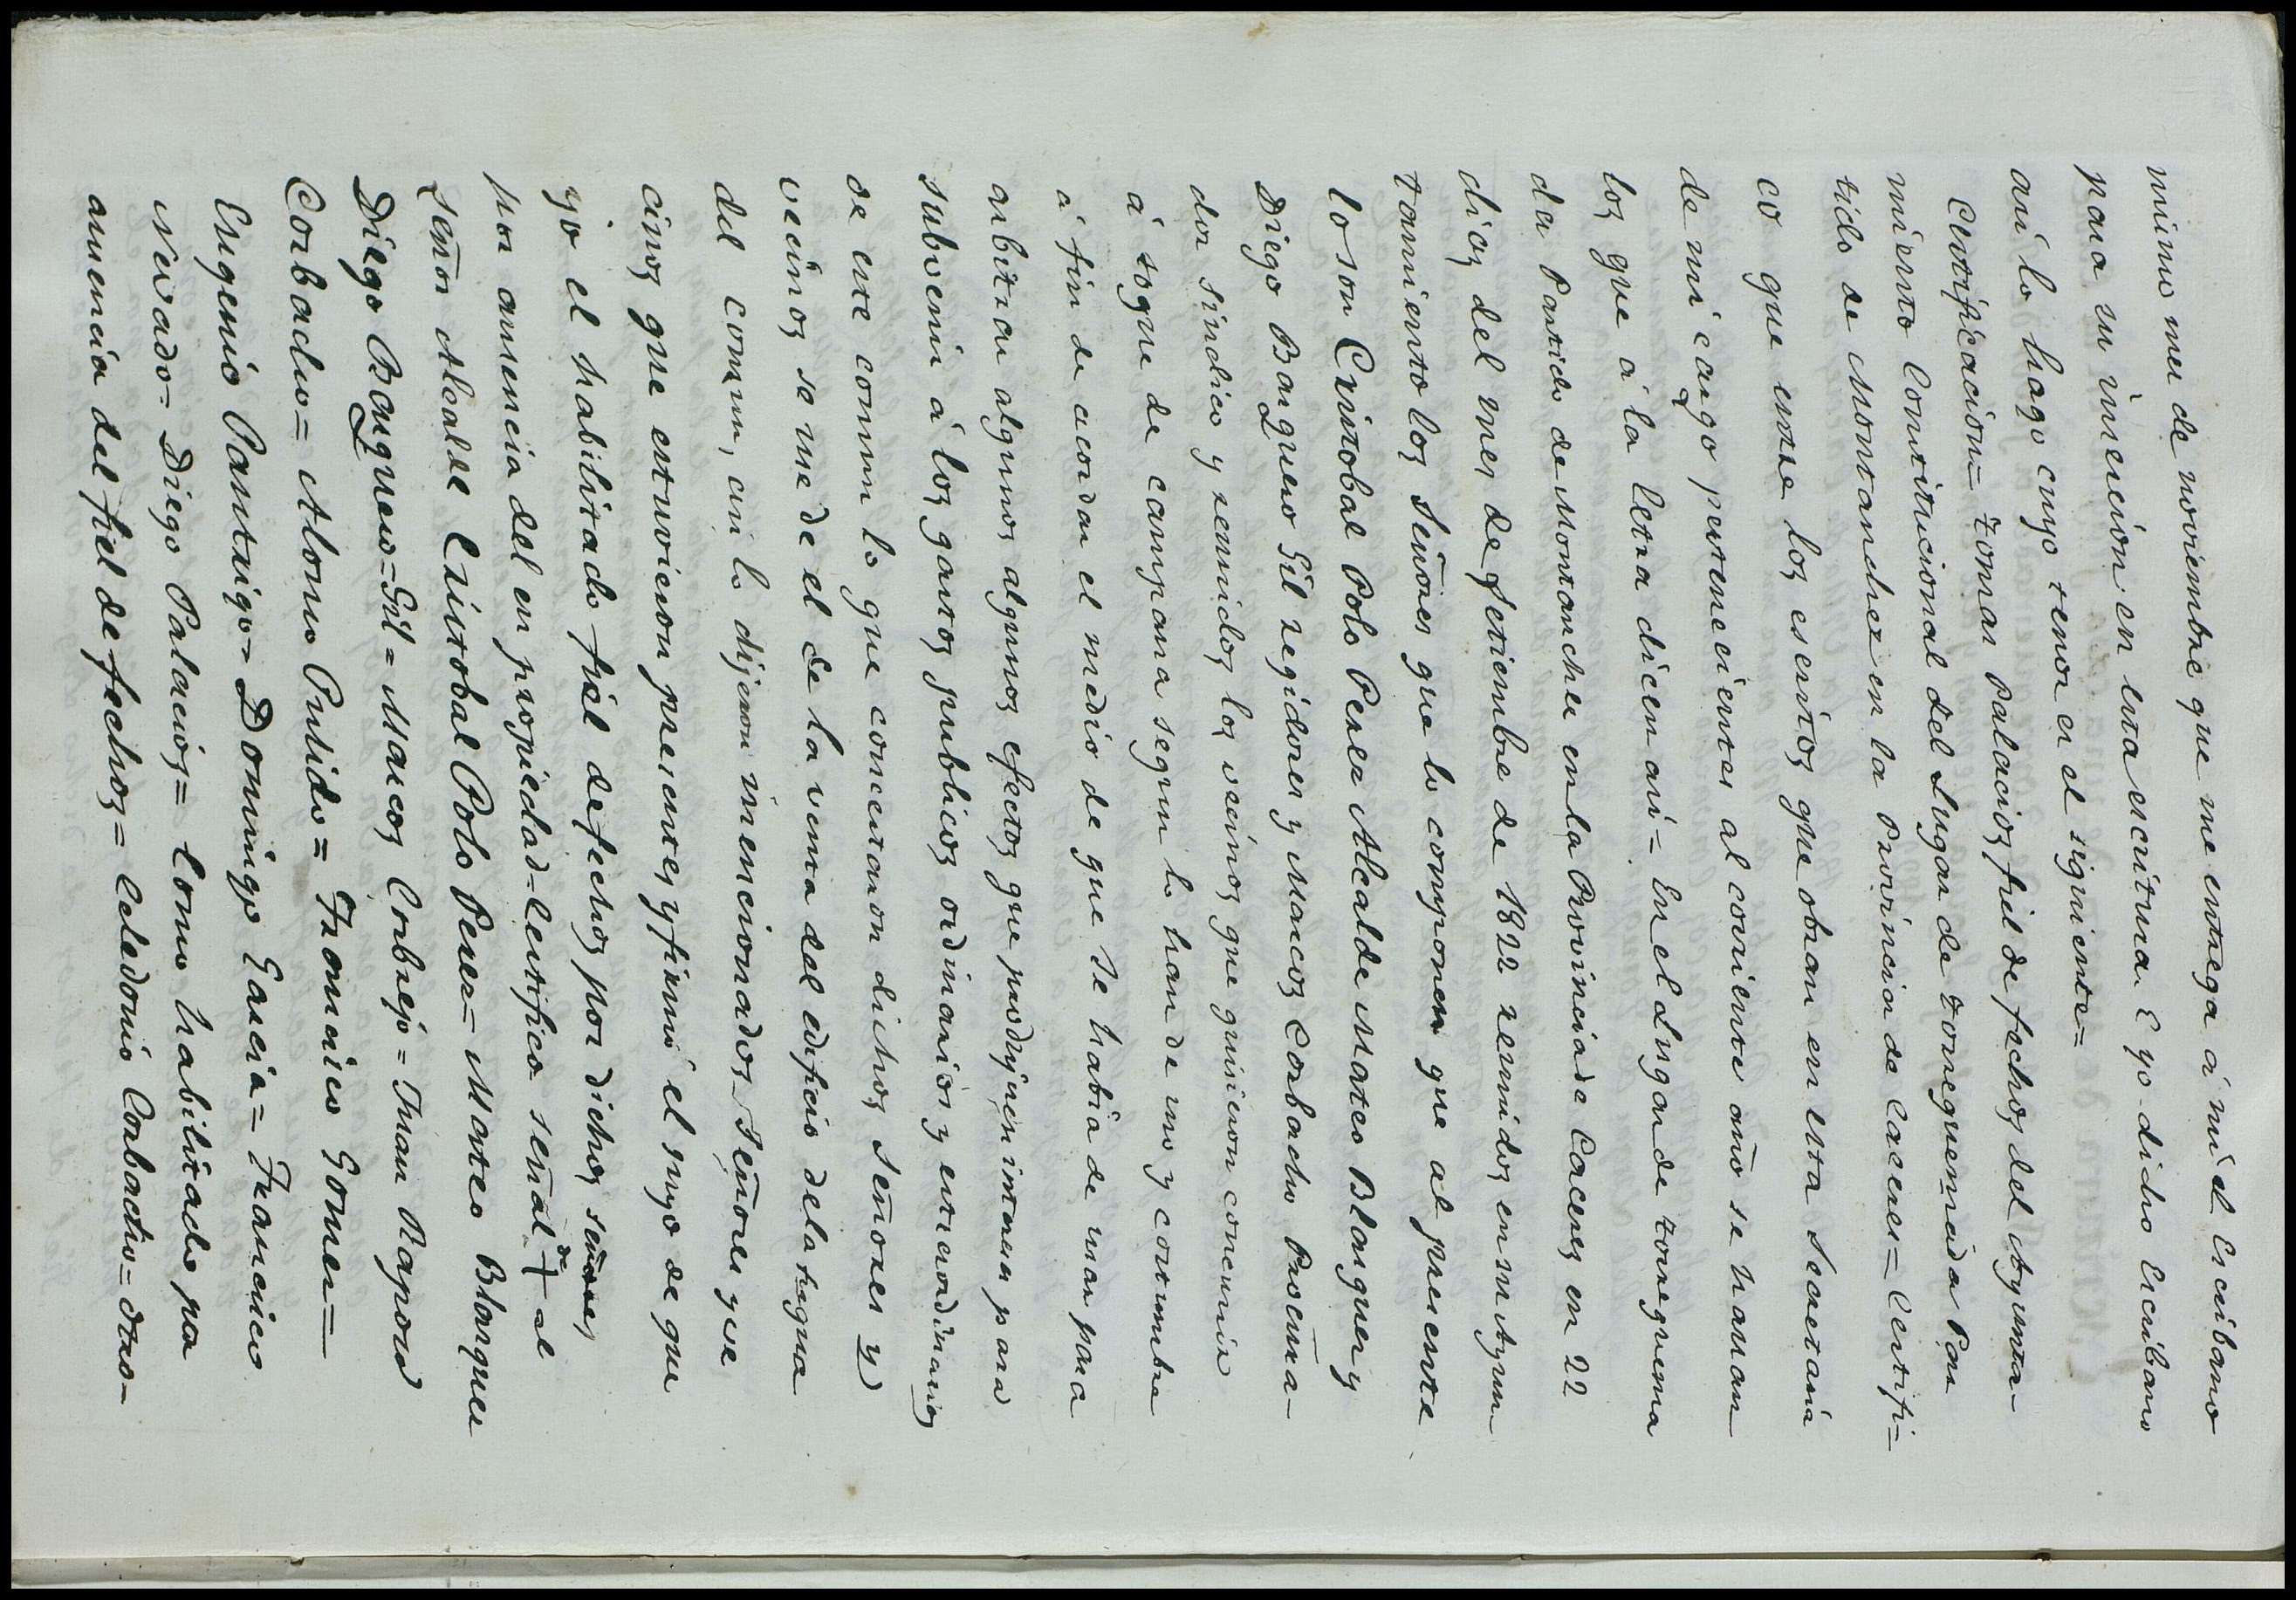 mimo mes de noviembre que me entrega á mi el Escribano
para su insercion en esta escritura. E yo dicho Escribano
asi lo hago cuyo tenor es el siguiente=
Certificacion= Tomas Palacios fiel de fechos del Ayunta-
miento Constitucional del Lugar de Torrequemada Par
tido de Montanchez en la Provincia de Caceres= Certifi=
co que entre los escritos que obran en esta Secretaria
de mi cargo pertenecientes al corriente año se hallan
los que á la letra dicen asi= En el Lugar de Torrequema
da Partido de Montanchez en la Provincia de Caceres en 22
dias del mes de Setiembre de 1822 reunidos en su Ayun
tamiento los Señores que lo componen que al presente
lo son Cristobal Polo Perez Alcalde Mateo Blanquez y
Diego Barquero Gil regidores y Marcos Corbacho Procura-
dor Sindico y reunidos los vecinos que quisieron concurrir
á toque de campana segun lo han de uso y costumbre
á fin de acordar el medio de que se habia de usar para
arbitrar algunos algunos efectos que produjesen interes para
subvenir á los gastos publicos ordinarios y extraordinarios
de este comun lo que concertaron dichos Señores y
vecinos se use de el de la venta del edificio de la fragua
del comun, asi lo dijeron mencionados Señores y ve
cinos que estuvieron presentes y firmó el suyo de que
yo el habilitado fiel de fechos por dichos señores
por ausencia del en propiedad= Certifico señal de + al
Señor Alcalde Cristobal Polo Perez= Mateo Blanquez
Diego Barquero=Gil= Marcos Corbejo= Juan Raposo
Corbacho= Alonso Pulido= Francisco Gomez=
Eugenio Pantrigo= Domingo Garcia= Francisco
Nevado= Diego Palacios= Como habilitado por
ausencia del fiel de fechos= Celedonio Corbacho= Otro-